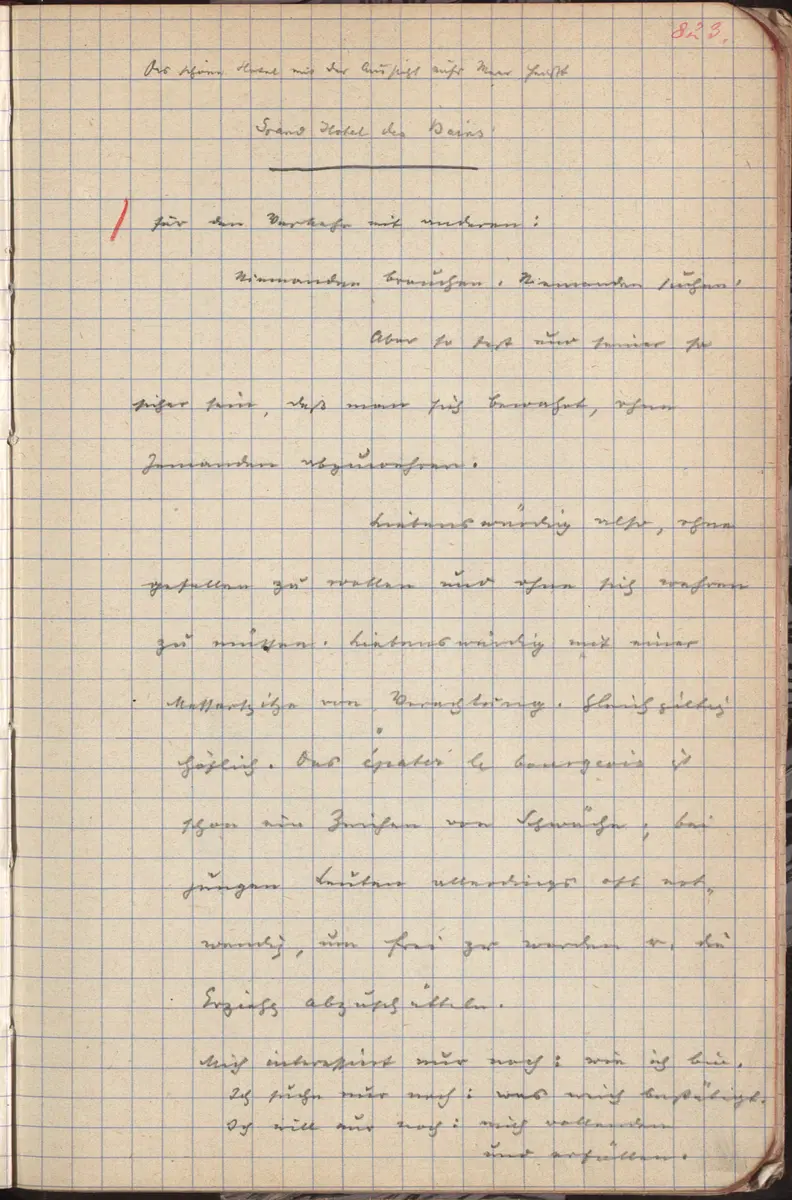 823.
Das schöne Hotel mit der Aussicht aufs Meer heißt
Grand Hotel des Bains.
für den Verkehr mit anderen:
Niemanden brauchen. Niemanden suchen.
Aber so fest und seiner so
sicher sein, daß man sich bewahrt, ohne
Jemanden abzuwehren.
Liebenswürdig also, ohne
gefallen zu wollen und ohne sich wehren
zu müssen. Liebenswürdig mit einer
Messerspitze von Verachtung. Gleichgiltig
höflich. Das épater le bourgeois ist
schon ein Zeichen von Schwäche; bei
jungen Leuten allerdings oft not-
wendig, um frei zu werden u. die
Erziehg abzuschütteln.
Mich interessiert nur noch: wie ich bin.
Ich suche nur noch: was mich bestätigt.
Ich will nur noch: mich vollenden
und erfüllen.